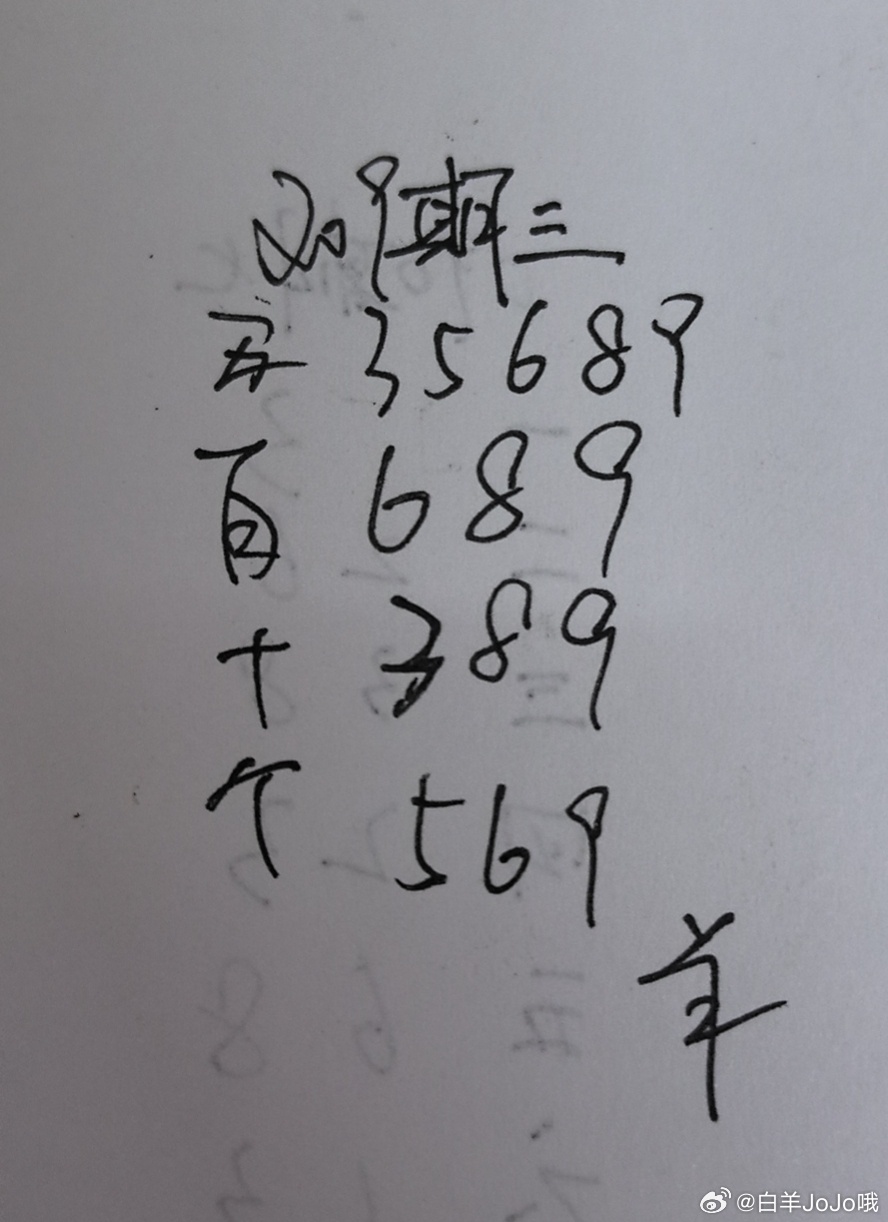 209期三
35689
百 689
十 389
个 569
@白羊JoJo哦